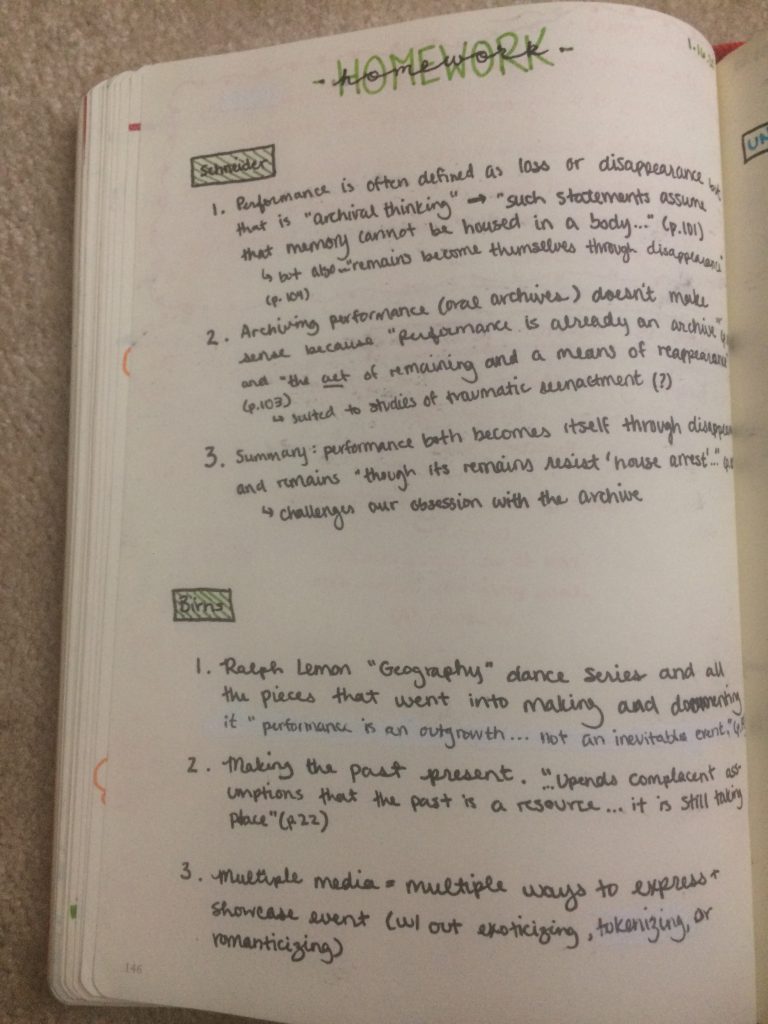 HOMEWORK
- homework -
1.16
UN
Schneider
1. Performance is often defined as loss or disappearance but
that is "archival thinking" → "such statements assume
that memory cannot be housed in a body..." (p.101)
↳ but also... "remains become themselves through disappearance"
(p.104)
2. Archiving performance (oral archives) doesn't make
sense because "performance is already an archive"
and "the act of remaining and a means of reappearance"
(p.103)
↳ suited to studies of traumatic reenactment (?)
3. Summary: performance both becomes itself through
and remains "though its remains resist 'house arrest'..."
↳ challenges our obsession with the archive
Birns
1. Ralph Lemon "Geography" dance series and all
the pieces that went into making and documenting
it "performance is an outgrowth... not an inevitable event,"
2. Making the past present. "...Upends complacent ass-
umptions that the past is a resource... it is still taking
place" (p.22)
3. Multiple media = multiple ways to express +
showcase event (w/ out exoticizing, tokenizing, or
romanticizing)
146